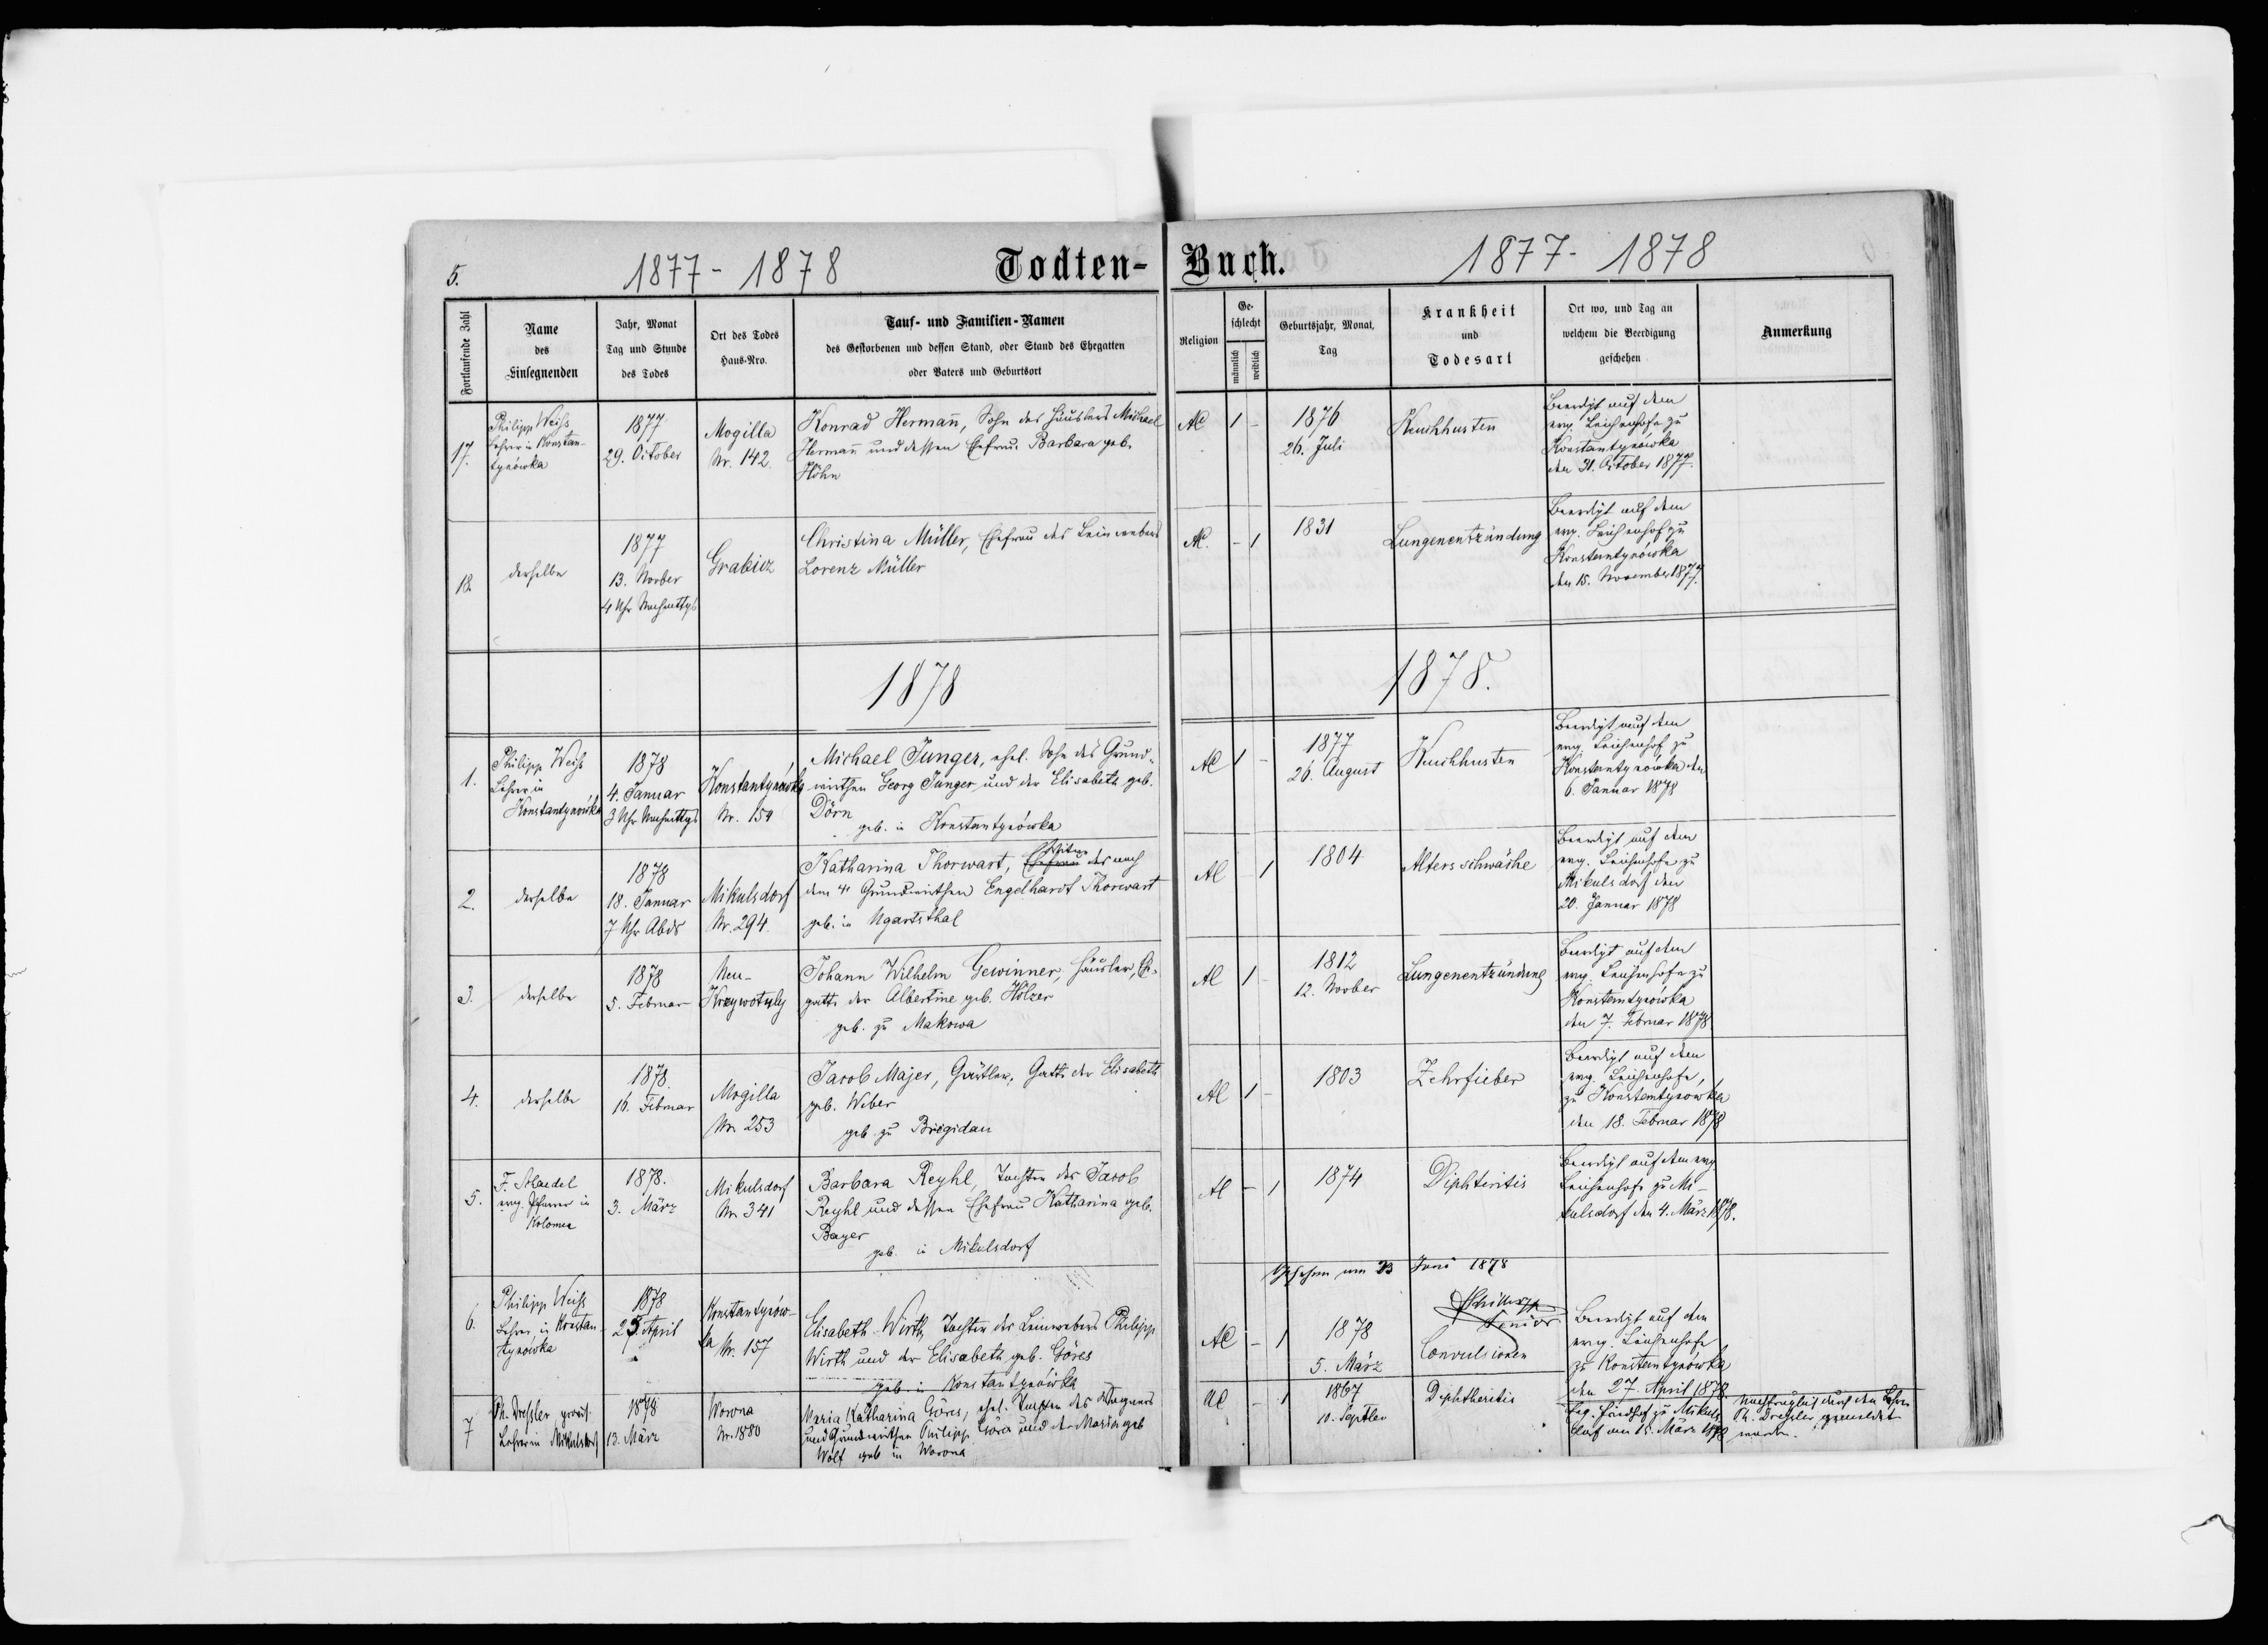 5.
1877 - 1878
Todten-
Buch.
1877 - 1878
Fortlaufende Zahl
Name
des
Einsegnenden
Jahr, Monat
Tag und Stunde
des Todes
Ort des Todes
Haus-Nro.
Tauf- und Familien-Namen
des Gestorbenen und dessen Stand, oder Stand des Ehegatten
oder Vaters und Geburtsort
Religion
Ge-
schlecht
männlich
weiblich
Geburtsjahr, Monat,
Tag
Krankheit
und
Todesart
Ort wo, und Tag an
welchem die Beerdigung
geschehen
Anmerkung
17.
Philipp Weiss
Lehrer in Konstan-
tynówka
1877
29. October
Mogilla
Nr. 142.
Konrad Hermañ, Sohn des Häuslers Michael
Hermañ und dessen Ehefrau Barbara geb.
Höhn
AC
1
-
1876
26. Juli
Keuchhusten
Beerdigt auf dem
evg. Leichenhofe zu
Konstantynówka
den 31. October 1877.
18.
derselbe
1877
13. Novber
4 Uhr Nachmittgs
Grabicz
Christina Müller, Ehefrau des Leinwebers
Lorenz Müller
AC.
-
1
1831
Lungenentzündung
Beerdigt auf dem
evg. Leichenhof zu
Konstantynówka
den 15. November 1877.
1878
1878.
1.
Philipp Weiss
Lehrer in
Konstantynówka
1878
4. Januar
3 Uhr Nachmittgs
Konstantynówka
Nr. 159
Michael Junger, ehel. Sohn des Grund-
wirthen Georg Junger und der Elisabeth geb.
Dörn
geb. in Konstantynówka
AC
1
-
1877
26. August
Keuchhusten
Beerdigt auf dem
evg. Leichenhof zu
Konstantynówka den
6. Januar 1878
2.
derselbe
1878
18. Januar
7 Uhr Abds
Mikulsdorf
Nr. 294.
Katharina Thorwart, Ehefrau des nach
Wittwe
dem † Grundwirthen Engelhardt Thorwart
geb. in Ugartsthal
AC
-
1
1804
Altersschwäche
Beerdigt auf dem
evg. Leichenhofe zu
Mikulsdorf den
20. Januar 1878
3.
derselbe
1878
5. Februar
Neu-
Krzywotuly
Johann Wilhelm Gewinner, Häusler, Eh-
gatte der Albertine geb. Hölzer
geb. zu Makowa
AC
1
-
1812
12. Novber
Lungenentzündung
Beerdigt auf dem
evg. Leichenhofe zu
Konstantynówka
den 7. Februar 1878
4.
derselbe
1878.
16. Februar
Mogilla
Nr. 253
Jacob Majer, Gärtler, Gatte der Elisabeth
geb. Weber
geb. zu Brigidau
AC
1
-
1803
Zehrfieber
Beerdigt auf dem
evg. Leichenhofe,
zu Konstantynowka
den 18. Februar 1878
5.
evg. Pfarrer in
Kolomea
1878.
3. März
Mikulsdorf
Nr. 341
Barbara Reyhl, Tochter des Jacob
Reyhl und dessen Ehefrau Katharina geb.
Bayer
geb. in Mikulsdorf
AC
-
1
1874
Diphtiritis
Beerdigt auf dem evg.
Leichenhofe zu Mi-
kulsdorf den 4. März 1878.
Gesehen am 23 Juni 1878
Senior
6.
Philipp Weiss
Lehrer in Konstan-
tynówka
1878
25. April
Konstantynów-
ka Nr. 157
Elisabeth Wirth, Tochter des Leinwebers Philipp
Wirth und der Elisabeth geb. Göres
geb. in Konstantynówka
AC
-
1
1878
5. März
Convulsionen
Beerdigt auf dem
evg. Leichenhofe
zu Konstantynówka
den 27. April 1878
7
Ph. Dressler, prov.
Lehrer in Mikulsdorf
1878
13. März
Worona
Nr. 1880
Maria Katharina Göres, ehel. Tochter des Wagners
und Grundwirthen Philipp Göres und der Maria geb
Wolf geb in Worona
AC
-
1
1867
10. Septber
Diphtheritis
evg. Friedhof zu Mikuls-
dorf am 15. März 1878
Nachträglich durch den Lehrer
Ph. Dressler gemeldet
worden.